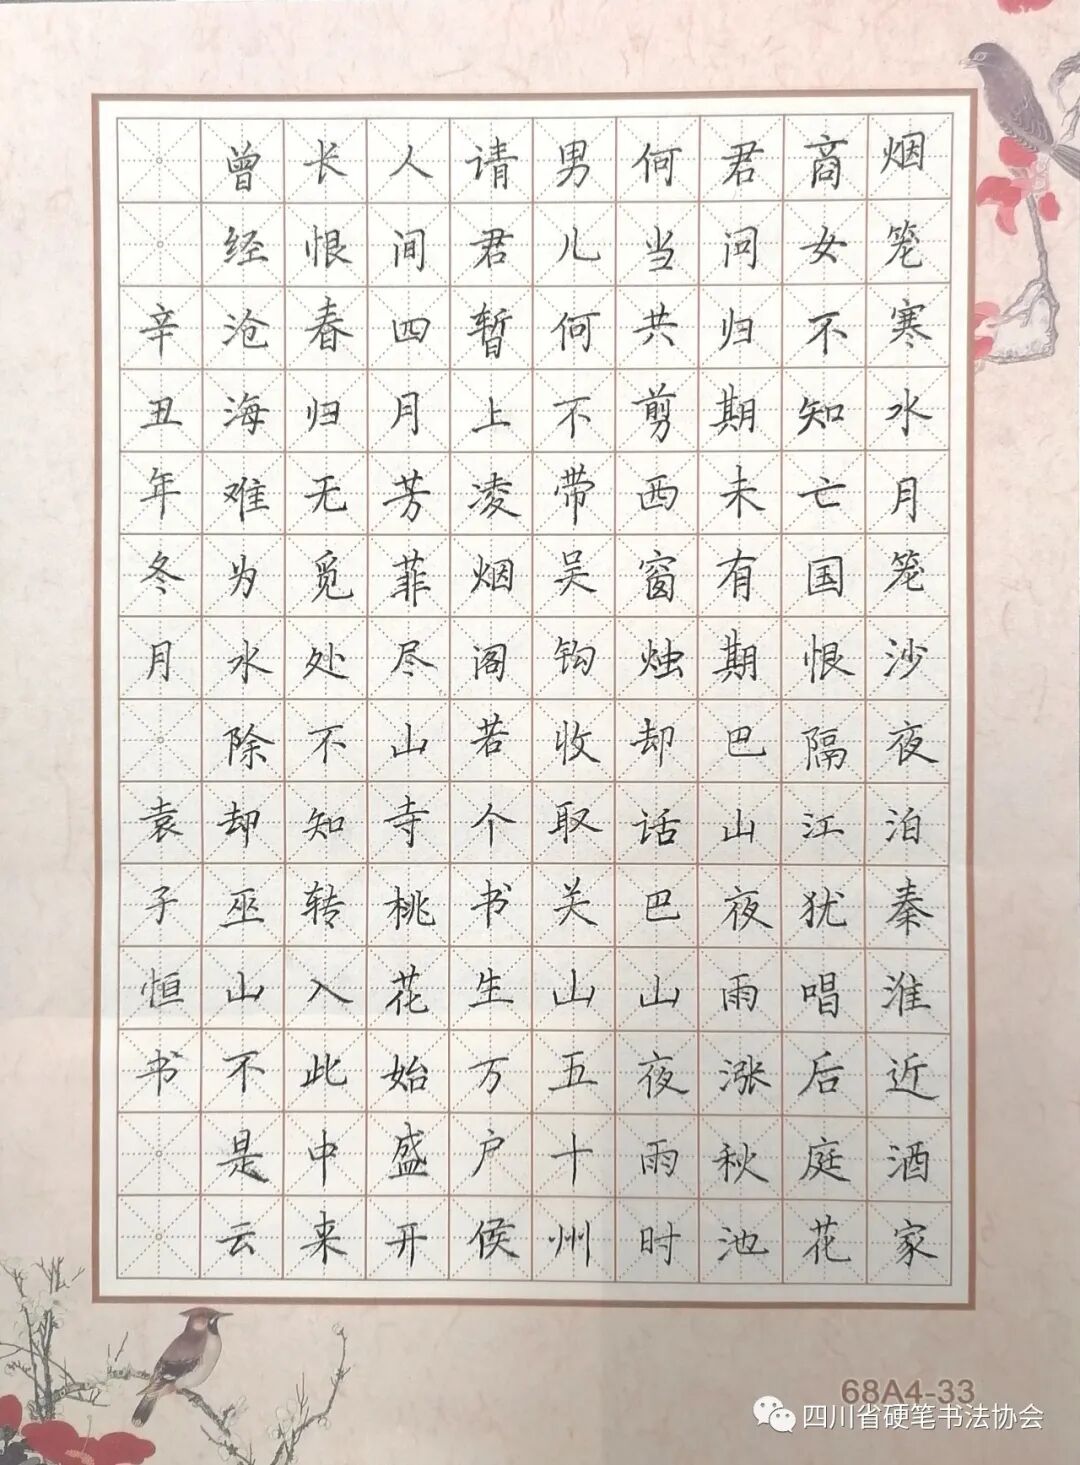 烟笼寒水月笼沙夜泊秦淮近酒家
商女不知亡国恨隔江犹唱后庭花
君问归期未有期巴山夜雨涨秋池
何当共剪西窗烛却话巴山夜雨时
男儿何不带吴钩收取关山五十州
请君暂上凌烟阁若个书生万户侯
人间四月芳菲尽山寺桃花始盛开
长恨春归无觅处不知转入此中来
曾经沧海难为水除却巫山不是云
辛丑年冬月 袁子恒书
68A4-33
四川省硬笔书法协会